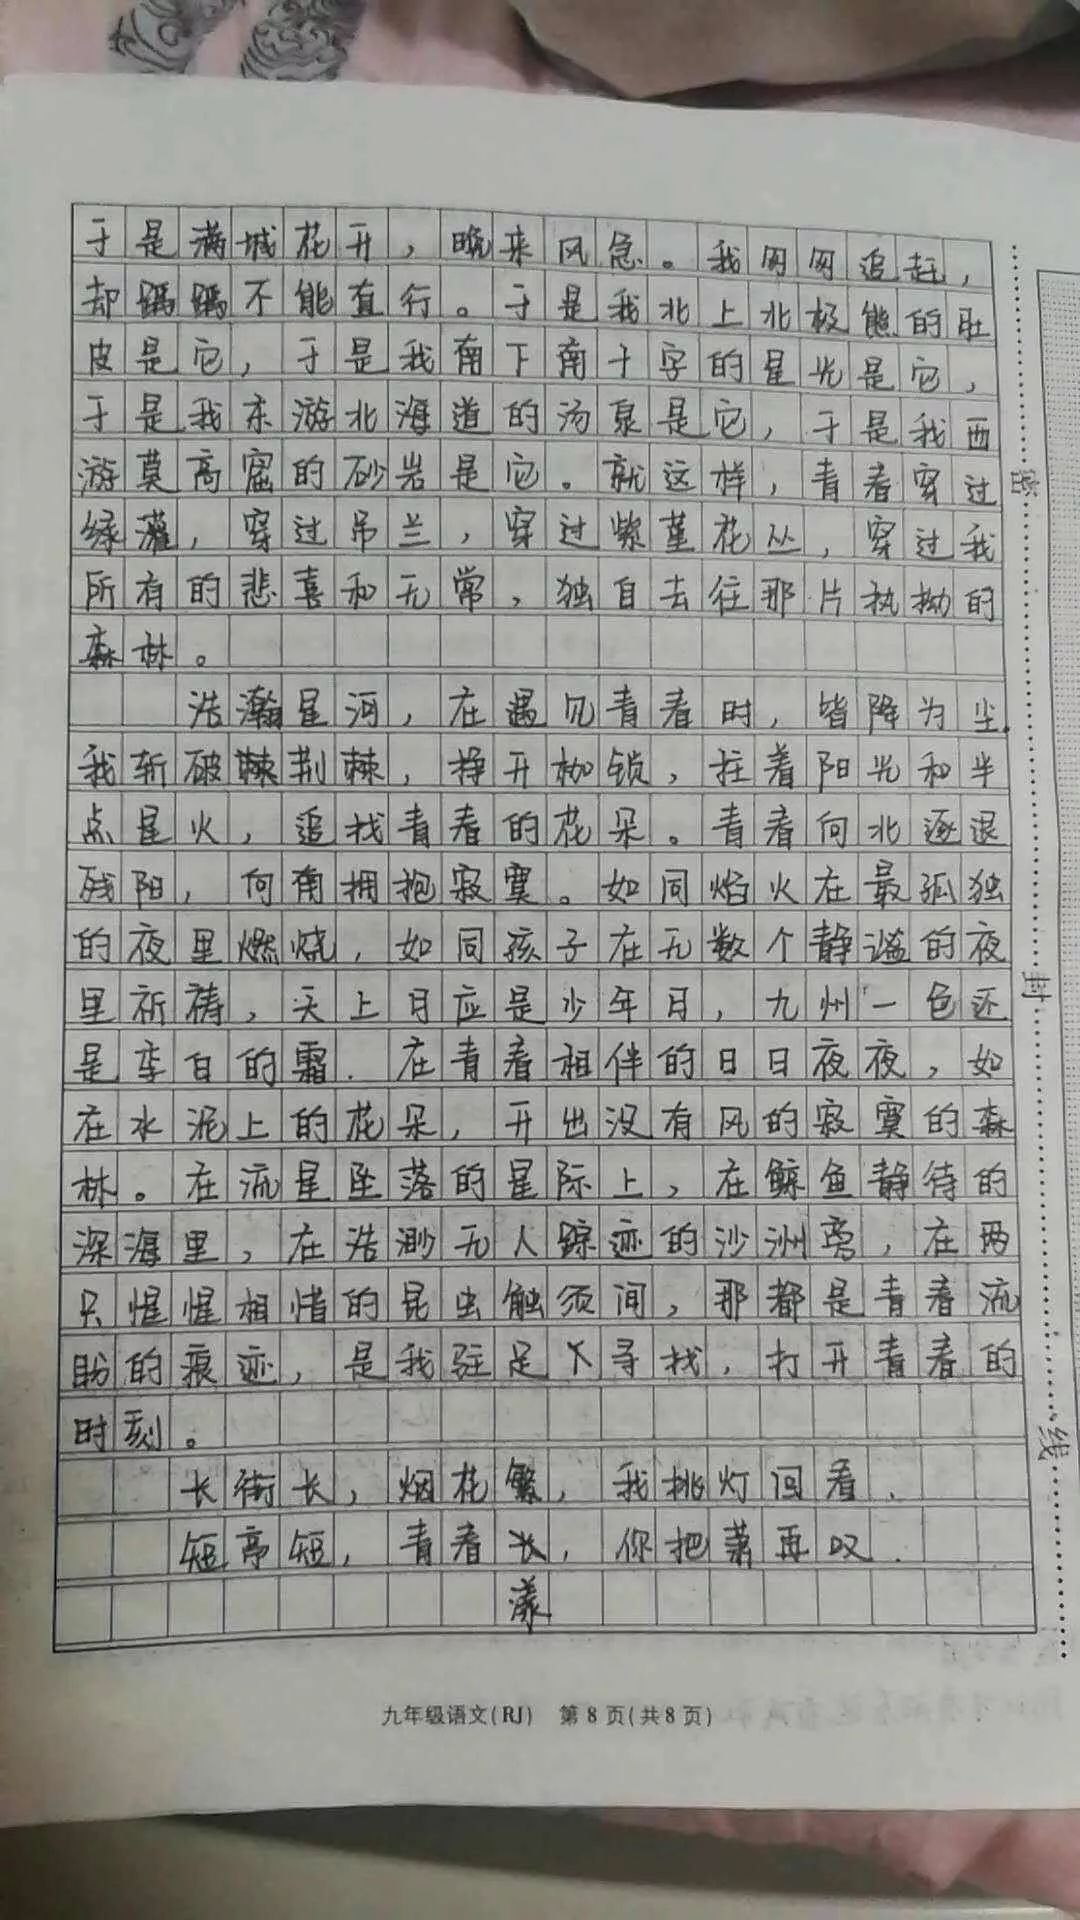 于是满城花开，晚来风急。我匆匆追赶，
却踽踽不能直行。于是我北上北极熊的肚
皮是它，于是我南下南十字的星光是它，
于是我东游北海道的汤泉是它，于是我西
游莫高窟的砂岩是它。就这样，青春穿过
绿灌，穿过吊兰，穿过紫堇花丛，穿过我
所有的悲喜和无常，独自去往那片执拗的
森林。
浩瀚星河，在遇见青春时，皆降为尘.
我斩破棘荆棘，挣开枷锁，拄着阳光和半
点星火，追找青春的花朵。青春向北逐退
残阳，向南拥抱寂寞。如同焰火在最孤独
的夜里燃烧，如同孩子在无数个静谧的夜
里祈祷，天上月应是少年月，九州一色还
是李白的霜.在青春相伴的日日夜夜，如
在水泥上的花朵，开出没有风的寂寞的森
林。在流星坠落的星际上，在鲸鱼静待的
深海里，在浩渺无人踪迹的沙洲旁，在两
只惺惺相惜的昆虫触须间，那都是青春流
盼的痕迹，是我驻足下寻找，打开青春的
时刻。
长街长，烟花繁，我挑灯回看.
短亭短，青春长，你把萧再叹.
漾
密
封
线
九年级语文(RJ) 第8页(共8页)